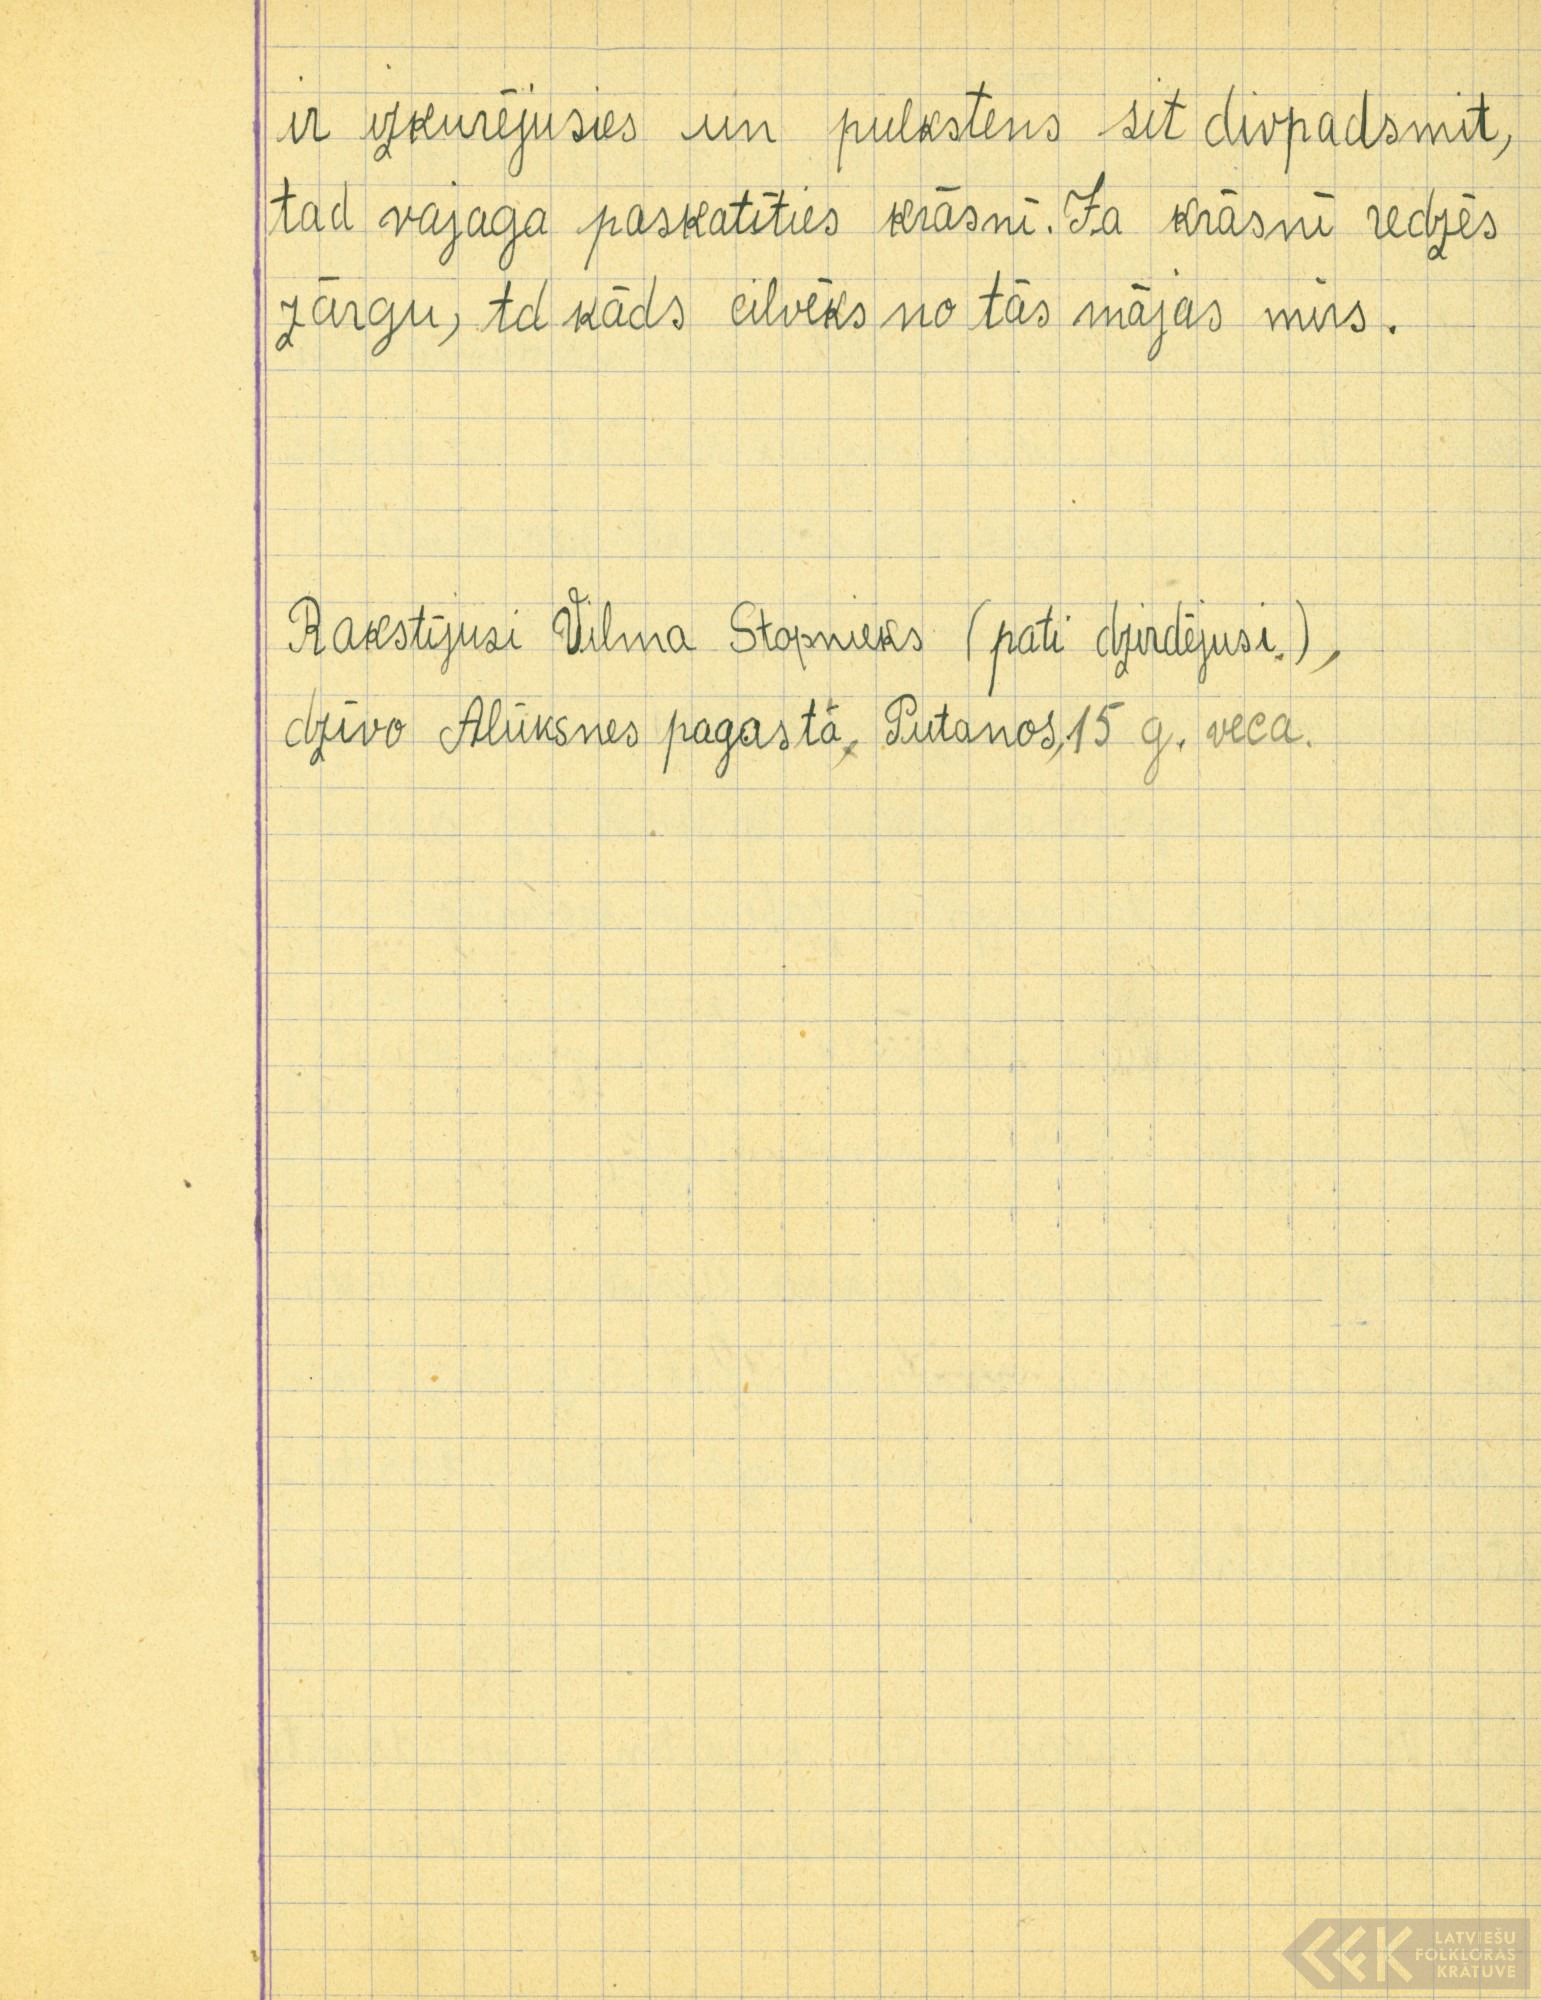 ir izkurējusies un pulkstens sit divpadsmit,
tad vajaga paskatīties krāsnī. Ja krāsnī redzēs
zārgu, td kāds cilvēks no tās mājas mirs.
Rakstījusi Vilma Stopnieks (pati dzirdējusi.),
dzīvo Alūksnes pagastā, Putanos, 15 g. veca.
LATVIEŠU
FOLKLORAS
KRĀTUVE